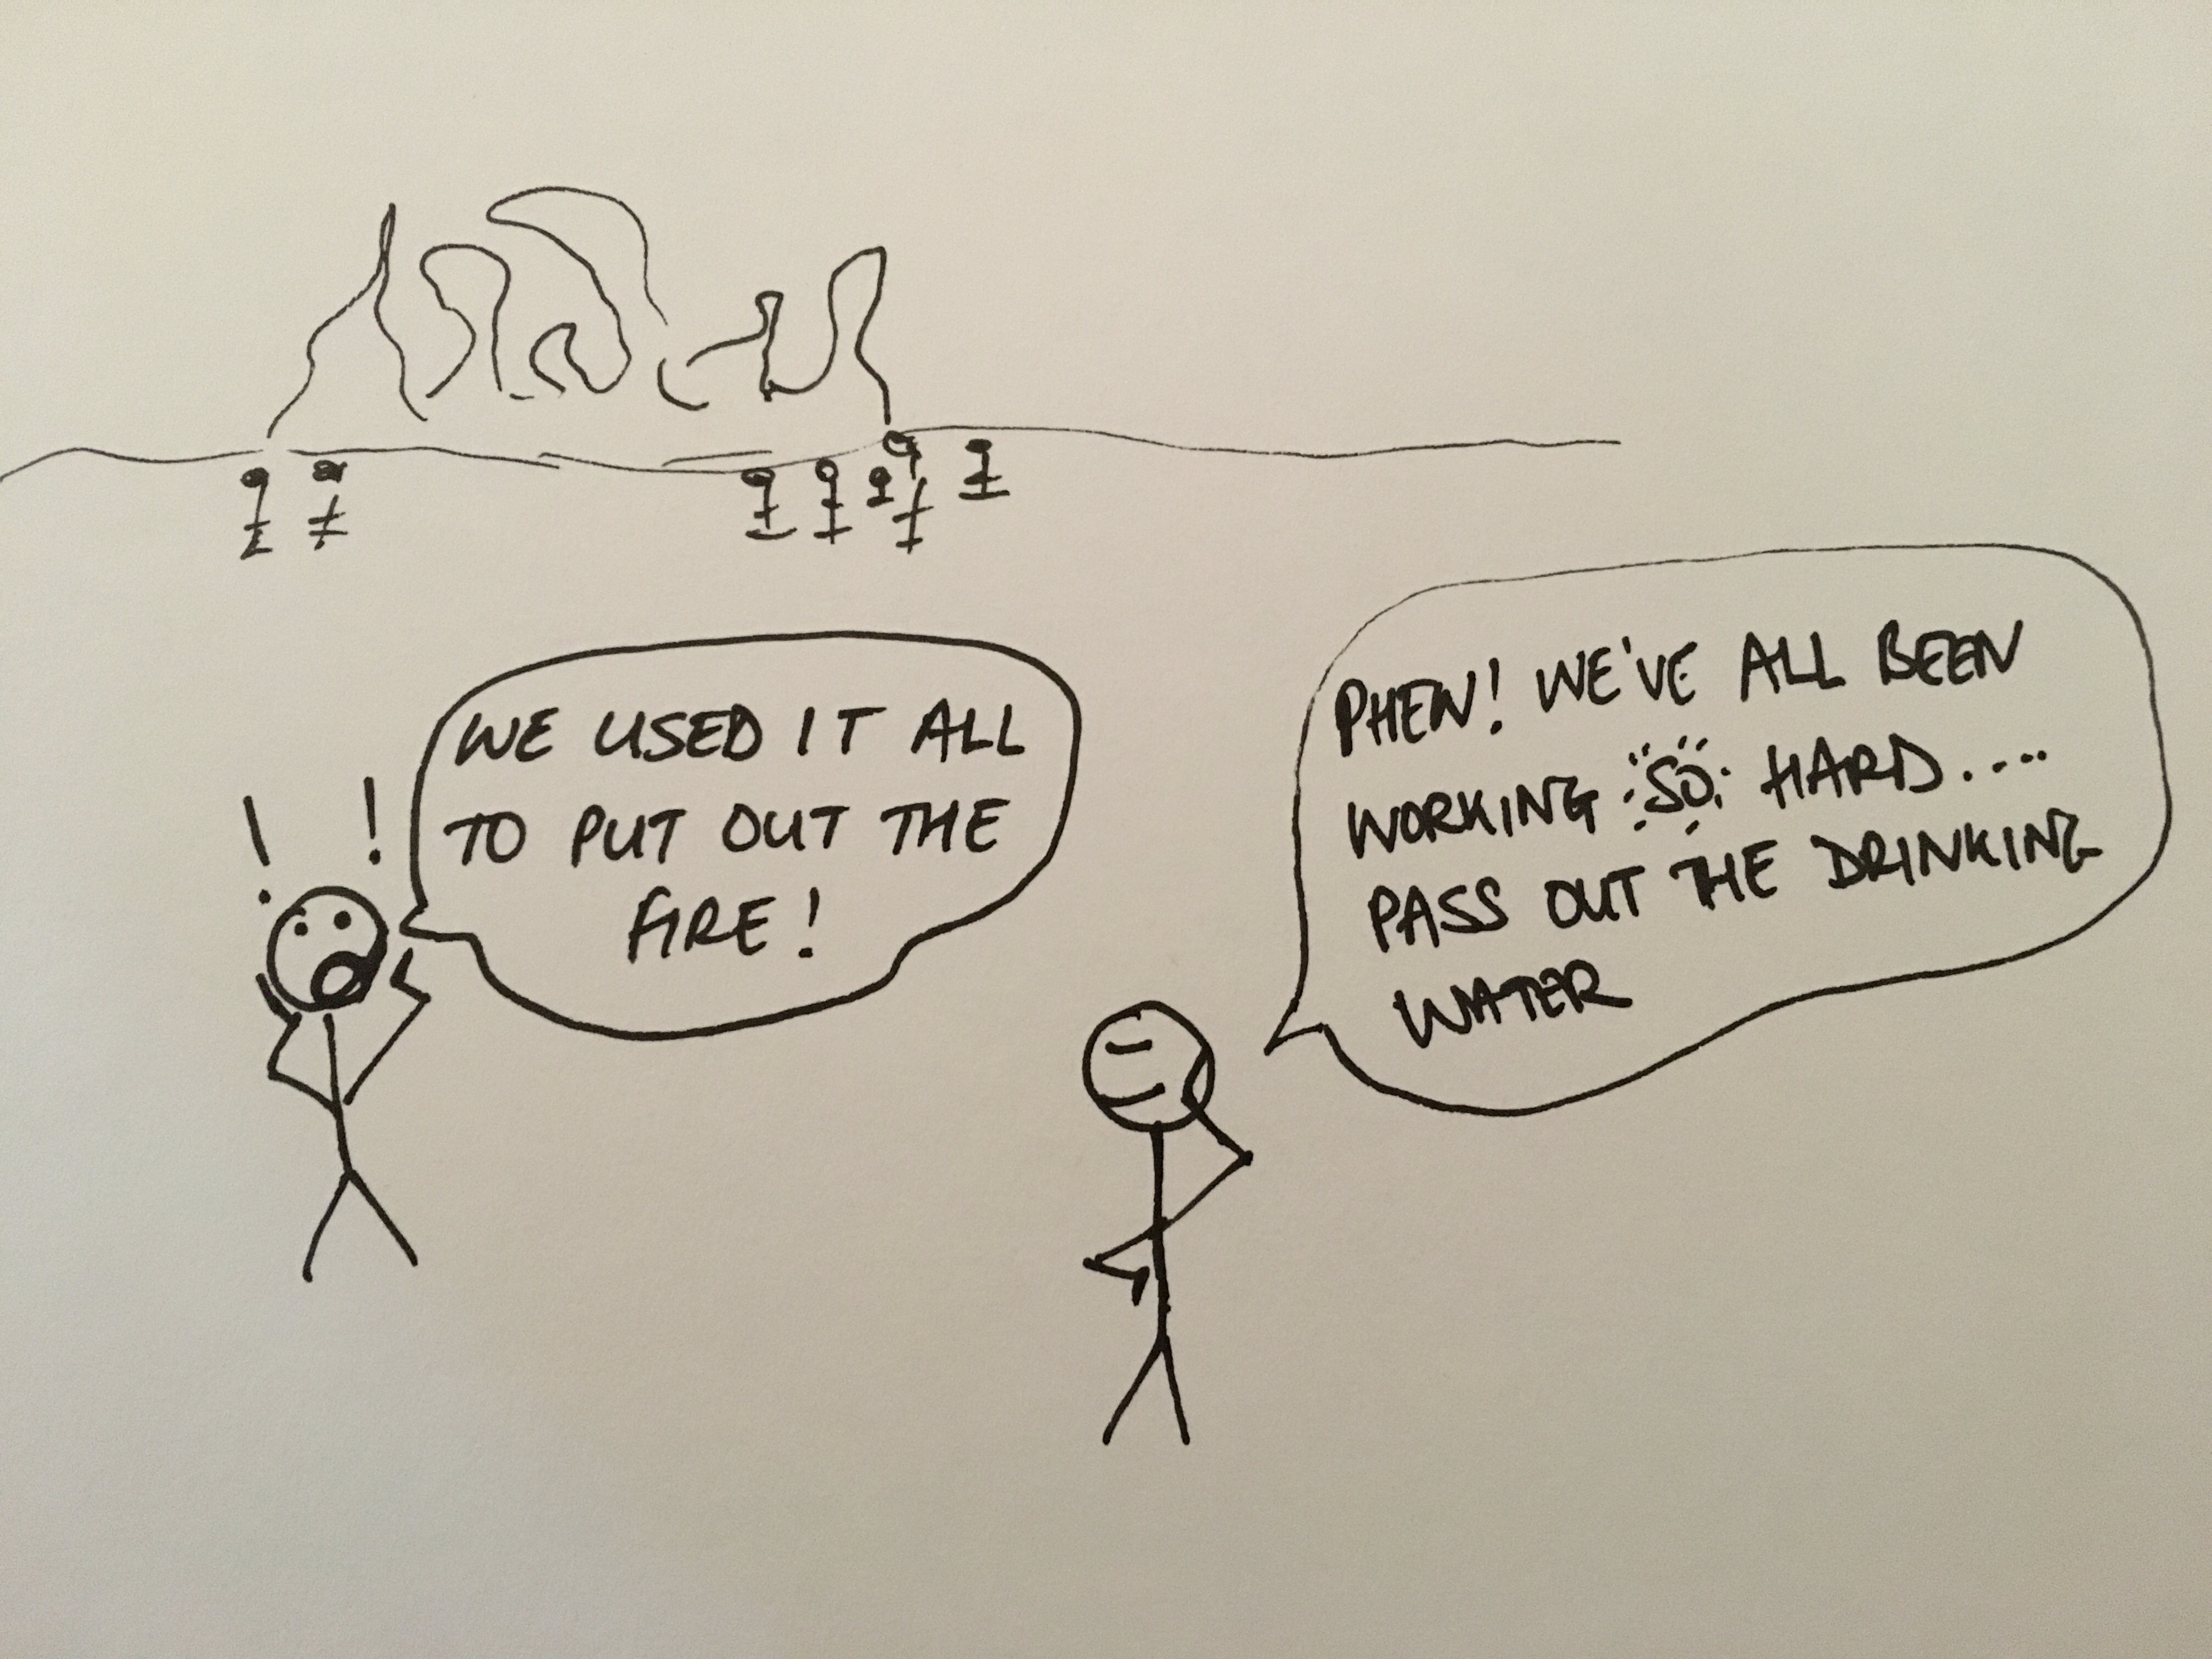 WE USED IT ALL
TO PUT OUT THE
FIRE!
PHEW! WE'VE ALL BEEN
WORKING SO HARD....
PASS OUT THE DRINKING
WATER
! !